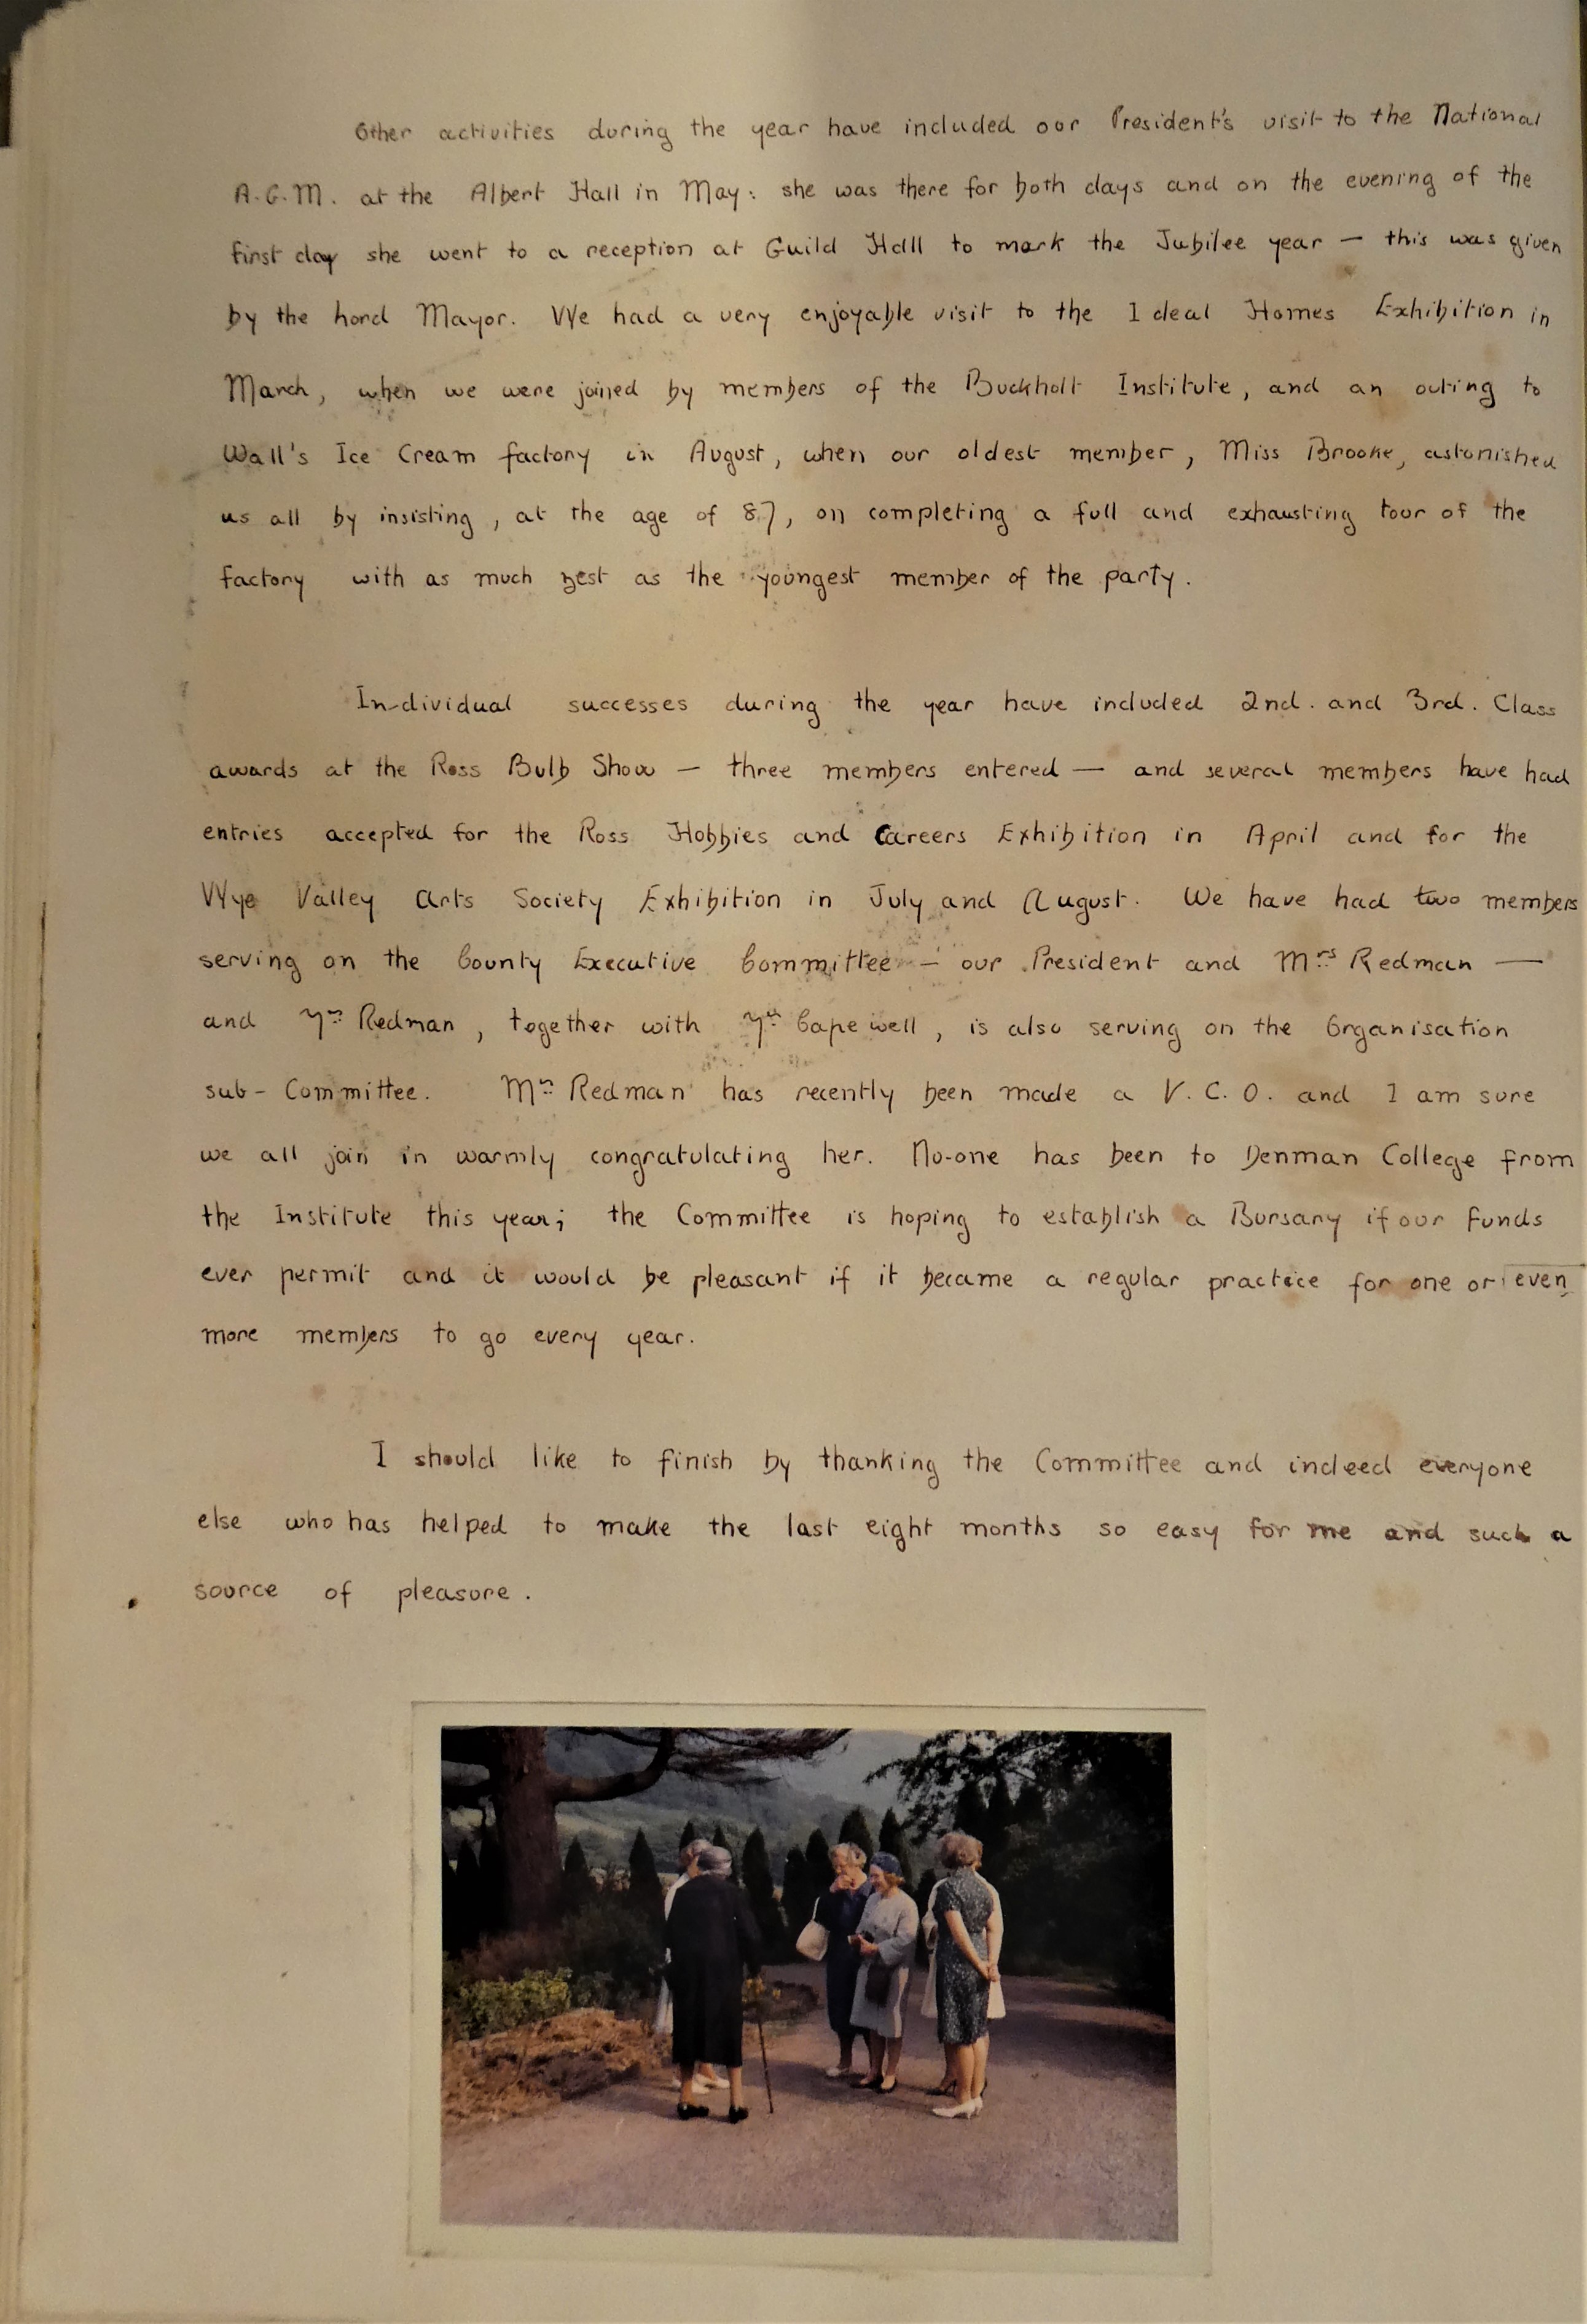 Other activities during the year have included our President's visit to the National
A.G.M. at the Albert Hall in May: she was there for both days and on the evening of the
first day she went to a reception at Guild Hall to mark the Jubilee year — this was given
by the Lord Mayor. We had a very enjoyable visit to the Ideal Homes Exhibition in
March, when we were joined by members of the Buckholt Institute, and an outing to
Wall's Ice Cream factory in August, when our oldest member, Miss Brooke, astonished
us all by insisting, at the age of 87, on completing a full and exhausting tour of the
factory with as much zest as the youngest member of the party.
In-dividual successes during the year have included 2nd. and 3rd. Class
awards at the Ross Bulb Show — three members entered — and several members have had
entries accepted for the Ross Hobbies and Careers Exhibition in April and for the
Wye Valley Arts Society Exhibition in July and August. We have had two members
serving on the County Executive Committee — our President and Mrs Redman —
and Mrs Redman, together with Mrs Capewell, is also serving on the Organisation
sub-Committee. Mrs Redman has recently been made a V.C.O. and I am sure
we all join in warmly congratulating her. No-one has been to Denman College from
the Institute this year; the Committee is hoping to establish a Bursary if our funds
ever permit and it would be pleasant if it became a regular practice for one or even
more members to go every year.
I should like to finish by thanking the Committee and indeed everyone
else who has helped to make the last eight months so easy for me and such a
source of pleasure.